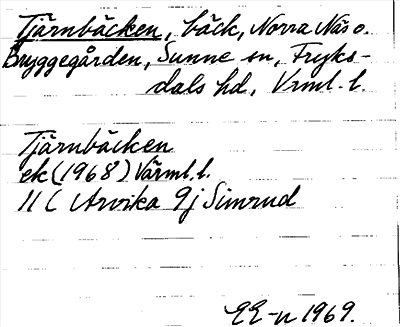 Tjärnbäcken, bäck, Norra Näs o.
Bryggegården, Sunne sn, Fryks-
dals hd, Vrml. l.
Tjärnbäcken
ek (1968) Värml. l.
11 C Arvika 9j Simrud
EE-n 1969.